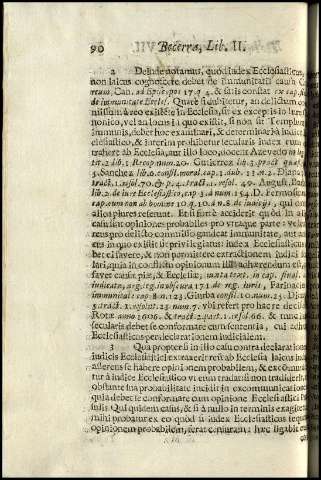 90 Becerra, Lib. II.
2 Deinde notamus, quod iudex Ecclesiasticus,
non laicus cognoscere debet de immunitatis causa
rum, Can. ad Episcopos 17. q. 4. & satis constat ex cap.
de immunitate Eccles. Quare si dubitetur, an delictum com
missum à reo existente in Ecclesia, sit ex exceptis in iure ca
nonico, vel an locus in quo existit, si non sit Templum
immunis, debet hoc examinari, & determinari à iudice
clesiastico, & interim prohibetur iudex secularis reum
trahere ab Ecclesia, aut illo loco; docent Azevedo
ter. 2. lib. 1. Recop. num. 20. Gutierrez lib. 3. pract. quaest.
5. Sanchez lib. 6. consil. moral. cap. 1. dub. 11. n. 2. Diana
tract. 1. resol. 70. & p. 4. tract. 1. resol. 49. August. Barb.
lib. 2. de iure Ecclesiastico, cap. 3. d num. 154. D. Fermosi
cap. cum non ab homine 10. q. 10. d n. 8. de iudicijs, qui
alios plures referunt. Et si forte acciderit quòd in
casu sint opiniones probabiles pro vtraque parte: vel
reus pro delicto commisso gaudeat immunitate, aut
cus in quo existit sit privilegiatus: iudex Ecclesiasticus
bet ei favere, & non permittere extractionem iudicis
lari, quia in conflictu opinionum illi adhaerendum est,
favet causae piae, & Ecclesiae; iuxta text. in cap. final.
iudicata, arg. reg. in obscura 171. de reg. iur. Farinacio
immunitat. cap. 8 n. 123. Giurba consil. 10. num. 25. Diana
9. tract. 1. resolut. 23. num. 7. vbi refert pro hac re deci
Rotae anno 1606. & tract. 2. part. 1. resol. 66. & tunc
secularis debet se conformare cum sententia, cui adhae
Ecclesiasticus per declarationem iudicialem.
3 Quapropter si in illo casu contra declarationem
iudicis Ecclesiastici extraxerit reum ab Ecclesia laicus
asserens se habere opinionem probabilem, & excommu
tur à iudice Ecclesiastico vt eum tradat; si non tradiderit,
obstante sua probabilitate incidit in excommunicationem
quia debet se conformare cum opinione Ecclesiastici
suli. Qui quidem casus, & si à nullo in terminis exagite
mihi probatur ex eo quòd si iudex Ecclesiasticus sequa
opinionem probabilem, ferat censuram: huic ligabit